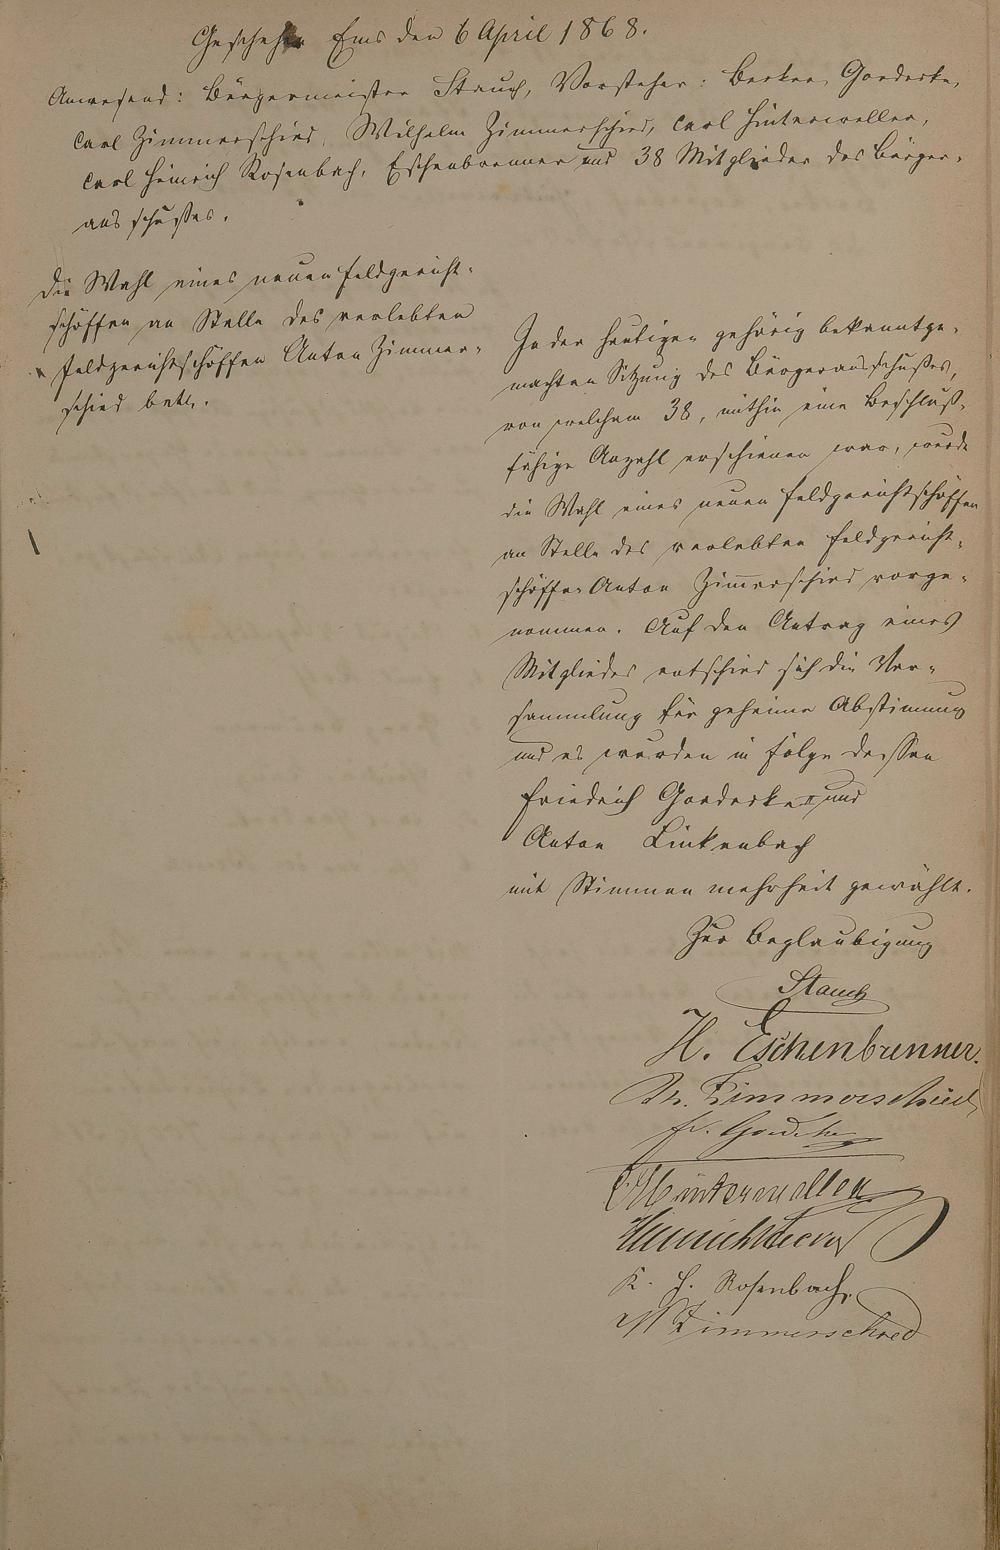 Geschehen Ems den 6 April 1868.
Anwesend: Bürgermeister Stauch, Vorsteher: Becker, Goedecke,
Carl Zimmerschied, Wilhelm Zimmerschied, Carl Hinterweller,
Carl Heinrich Rosenbach, Eschenbrenner und 38 Mitglieder des Bürger-
ausschußes.
Die Wahl eines neuen Feldgericht-
schöffen an Stelle des verlebten
Feldgerichtschöffen Anton Zimmer-
schied betr.
In der heutigen gehörig bekanntge-
machten Sitzung des Bürgerausschußes,
von welchem 38, mithin eine Beschluß-
fähige Anzahl erschienen war, wurde
die Wahl eines neuen Feldgerichtschöffen
an Stelle des verlebten Feldgericht-
schöffen Anton Zimerschied vorge-
nommen. Auf den Antrag eines
Mitgliedes entschied sich die Ver-
sammlung für geheime Abstimung
und es wurden in Folge dessen
Friedrich Goedecke II und
Anton Linkenbach
mit Stimmenmehrheit gewählt.
Zur Beglaubigung
Stauch
H. Eschenbrenner.
Zimmerschied
Fr. Goedecke
C. Hinterweller
Heinrich Becker
K. H. Rosenbach,
W Zimmerschied